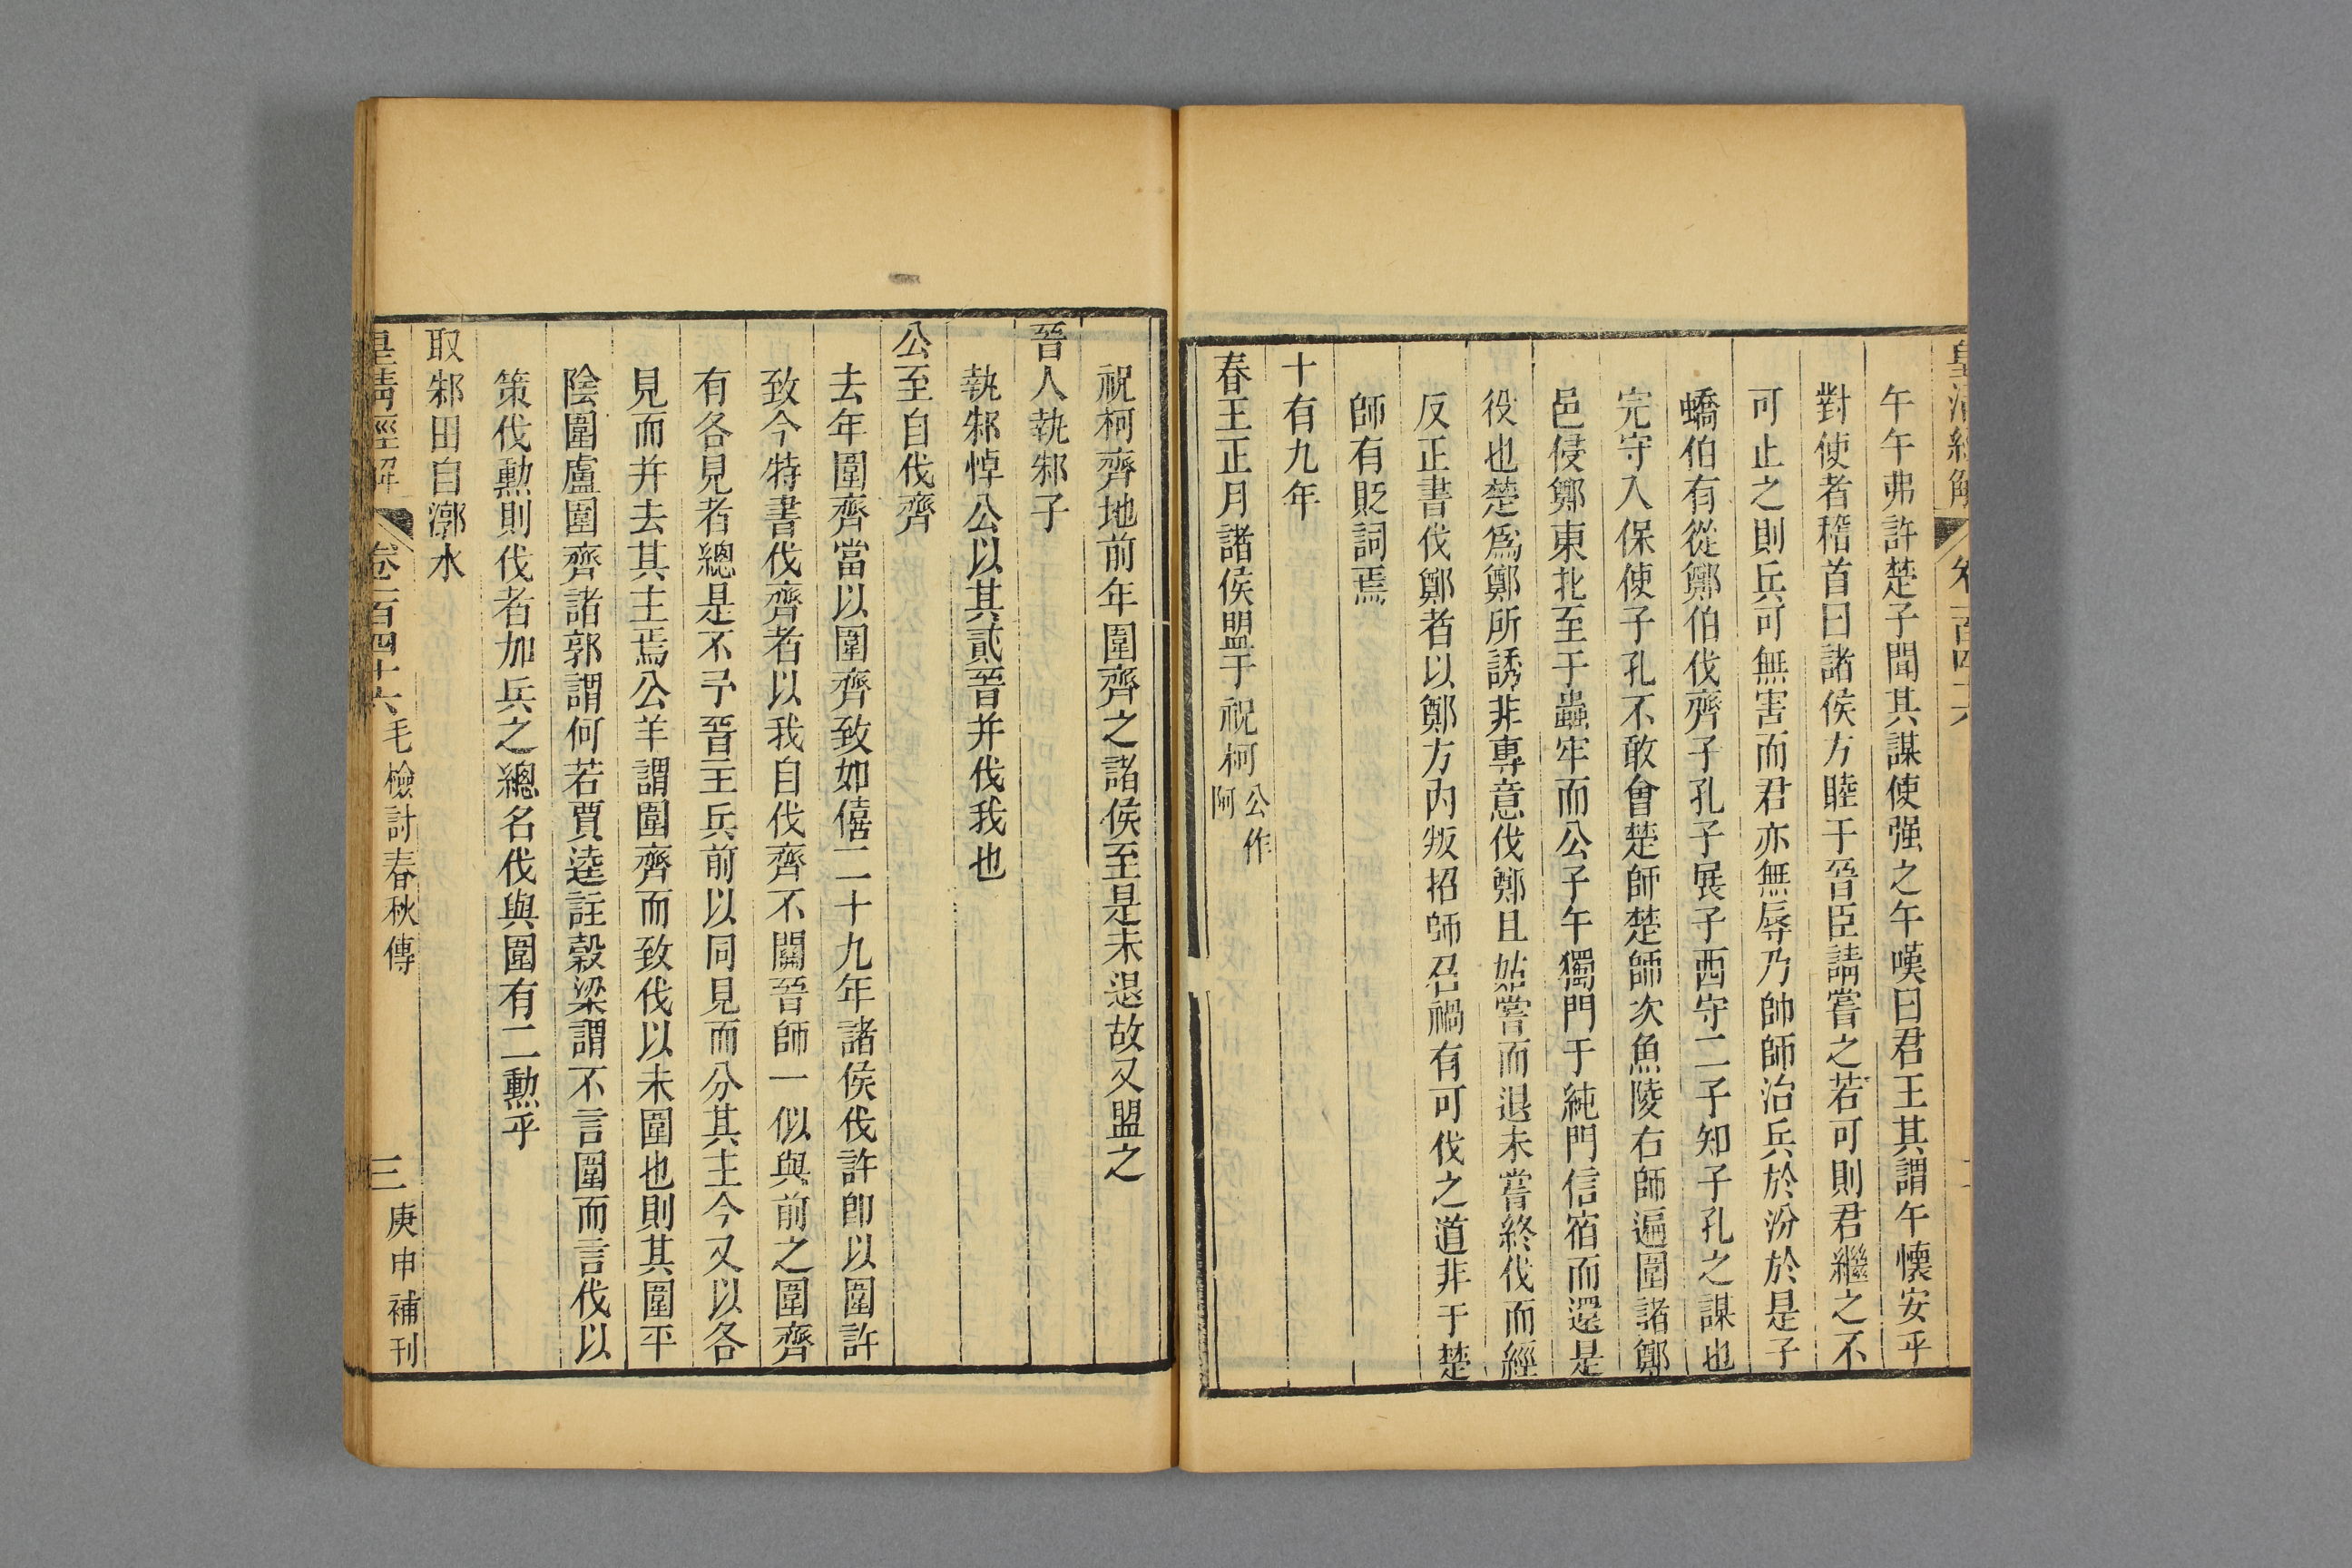 皇清經解 卷一百四十六
午午弗許楚子聞其謀使强之午嘆曰君王其謂午懷安乎
對使者稽首曰諸侯方睦于晉臣請嘗之若可則君繼之不
可止之則兵可無害而君亦無辱乃帥師治兵於汾於是子
蟜伯有從鄭伯伐齊子孔子展子西守二子知子孔之謀也
完守入保使子孔不敢會楚師楚師次魚陵右師遍圍諸鄭
邑侵鄭東北至于蟲牢而公子午獨門于純門信宿而還是
役也楚爲鄭所誘非專意伐鄭且姑嘗而退未嘗終伐而經
反正書伐鄭者以鄭方內叛招師召禍有可伐之道非于楚
師有貶詞焉
十有九年
春王正月諸侯盟于祝柯公作阿
祝柯齊地前年圍齊之諸侯至是未退故又盟之
晉人執邾子
執邾悼公以其貳晉并伐我也
公至自伐齊
去年圍齊當以圍齊致如僖二十九年諸侯伐許卽以圍許
致今特書伐齊者以我自伐齊不關晉師一似與前之圍齊
有各見者總是不予晉主兵前以同見而分其主今又以各
見而并去其主焉公羊謂圍齊而致伐以未圍也則其圍平
陰圍盧圍齊諸郭謂何若賈逵註穀梁謂不言圍而言伐以
策伐勲則伐者加兵之總名伐與圍有二勲乎
取邾田自漷水
皇清經解 卷一百四十六 毛檢討春秋傳 三 庚申補刊